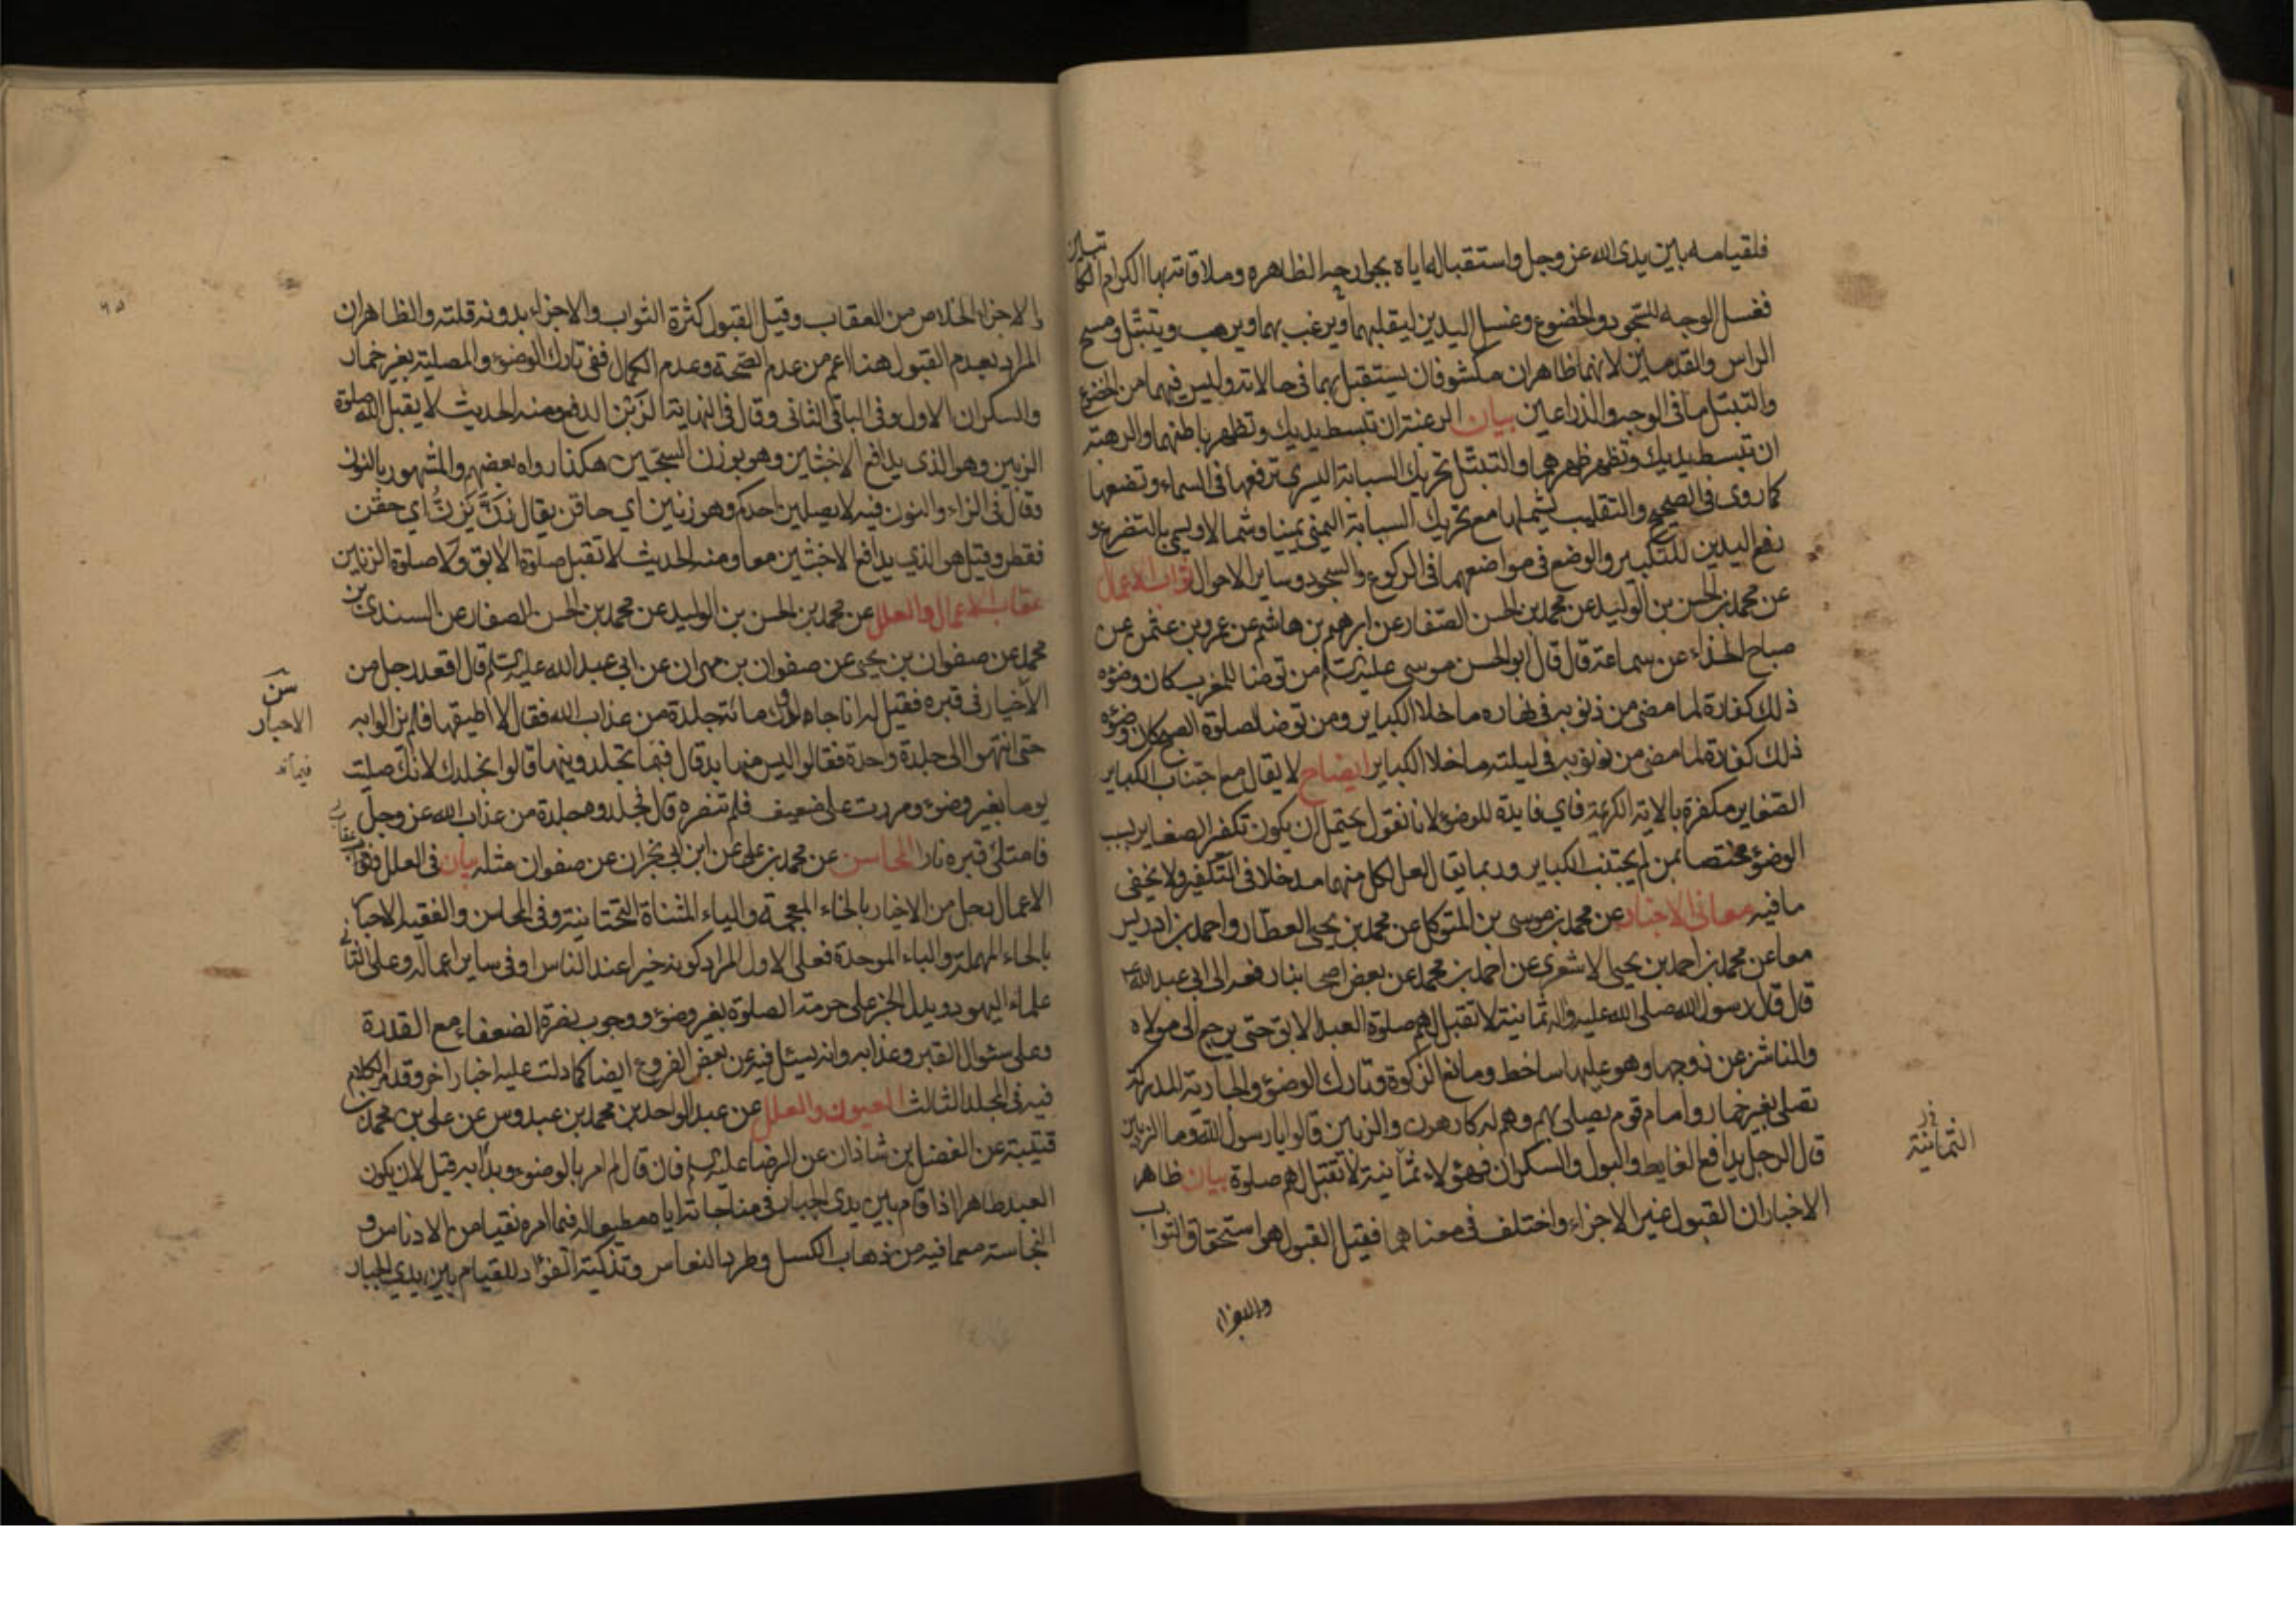 فلقيامه بين يدى الله عز وجل واستقباله اياه بجوارحه الظاهره وملاقاته بها الكرام الكاتبين
فغسل الوجه للسجود والخضوع وغسل اليدين ليقلبهما ويرغب بهما ويرهب ويتبتل ومسح
الراس والقدمين لانهما ظاهران مكشوفان يستقبل بهما فى حالاته وليس فيهما من الخضوع
والتبتل ما فى الوجه والذراعين بيان الرغبة ان تبسط يديك وتظهر باطنهما والرهبة
ان تبسط يديك وتظهر ظهرهما والتبتل تحريك السبابة اليسرى ترفعها فى السماء وتضعها
كما روى فى الصحيح والتقليب يشملها مع تحريك السبابة اليمنى يمينا وشمالا ويسمى بالتضرع و
رفع اليدين للتكبير والوضع فى مواضعهما فى الركوع والسجود وساير الاحوال ثواب الاعمال
عن محمد بن الحسن بن الوليد عن محمد بن الحسن الصفار عن ابرهيم بن هاشم عن عمرو بن عثمن عن
صباح الحذاء عن سماعة قال قال ابو الحسن موسى عليه السلم من توضا للمغرب كان وضوؤه
ذلك كفارة لما مضى من ذنوبه فى نهاره ما خلا الكباير ومن توضا لصلوة الصبح كان وضوؤه
ذلك كفارة لما مضى من ذنوبه فى ليلته ما خلا الكباير ايضاح لا يقال مع اجتناب الكباير
الصغاير مكفرة بالاية الكريمة فاي فايدة للوضوء لانا نقول يحتمل ان يكون تكفر الصغاير بسبب
الوضوء مختصا بمن لم يجتنب الكباير وربما يقال لعل لكل منهما مدخلا فى التكفير ولا يخفى
ما فيه معانى الاخبار عن محمد بن موسى بن المتوكل عن محمد بن يحيى العطار واحمد بن ادريس
معا عن محمد بن احمد بن يحيى الاشعرى عن احمد بن محمد عن بعض اصحابنا رفعه الى ابى عبد الله ع
قال قال رسول الله صلى الله عليه واله ثمانية لا تقبل لهم صلوة العبد الابق حتى يرجع الى مولاه
والناشز عن زوجها وهو عليها ساخط ومانع الزكوة وتارك الوضوء والجارية المدركة
تصلى بغير خمار وامام قوم يصلى بهم وهم له كارهون والزبين قالوا يا رسول الله وما الزبين
قال الرجل يدافع الغايط والبول والسكران فهؤلاء ثمانية لا تقبل لهم صلوة بيان ظاهر
الاخبار ان القبول غير الاجزاء واختلف فى معناهما فقيل القبول هو استحقاق الثواب
الثمانية
والاجزاء الخلاص من العقاب وقيل القبول كثرة الثواب والاجزاء بدونه قلته والظاهر ان
المراد بعدم القبول هنا اعم من عدم الصحة وعدم الكمال ففى تارك الوضوء والمصلية بغير خمار
والسكران الاول وفى الباقى الثانى وقال فى النهاية الزبن الدفع ومنه الحديث لا يقبل الله صلوة
الزبين وهو الذى يدافع الاخبثين وهو بوزن السجين هكذا رواه بعضهم والمشهور بالنون
وقال فى الزاء والنون فيه لا يصلين احدكم وهو زنين اي حاقن يقال زن يزن اي حقن
فقطر وقيل هو الذي يدافع الاخبثين معا ومنه الحديث لا تقبل صلوة الابق ولا صلوة الزنين
عقاب الاعمال والعلل عن محمد بن الحسن بن الوليد عن محمد بن الحسن الصفار عن السندى بن
محمد عن صفوان بن يحيى عن صفوان بن مهران عن ابى عبد الله عليه السلم قال اقعد رجل من
الاخيار فى قبره فقيل له انا جالدوك مائة جلدة من عذاب الله فقال لا اطيقها فلم يزالوا به
حتى انتهوا الى جلدة واحدة فقالوا ليس منها بد قال فيما تجلدونيها قالوا نجلدك لانك صليت
يوما بغير وضوء ومررت على ضعيف فلم تنصره قال فجلدوه جلدة من عذاب الله عز وجل
فامتلئ قبره نارا المحاسن عن محمد بن على عن ابن ابى نجران عن صفوان مثله بيان فى العلل وثواب
الاعمال رجل من الاخيار بالخاء المعجمة والياء المثناة التحتانية وفى المحاسن والفقيه الاحبار
بالحاء المهملة والباء الموحدة فعلى الاول المراد كونه خيرا عند الناس او فى ساير اعماله وعلى الثانى
علماء اليهود ويدل الخبر على حرمة الصلوة بغير وضوء ووجوب نصرة الضعفاء مع القدرة
وعلى سئوال القبر وعذابه وانه يسئل فيه عن بعض الفروع ايضا كما دلت عليه اخبار اخر وقد مر الكلام
فيه فى المجلد الثالث العيون والعلل عن عبد الواحد بن محمد بن عبدوس عن على بن محمد بن
قتيبة عن الفضل بن شاذان عن الرضا عليه السلم فان قال لم امر بالوضوء وبدا به قيل لان يكون
العبد طاهرا اذا قام بين يدى الجبار فى مناجاته اياه مطيعا له فيما امره نقيا من الادناس و
النجاسة مع ما فيه من ذهاب الكسل وطرد النعاس وتذكية الفؤاد للقيام بين يدي الجبار
من
الاحبار
عقاب